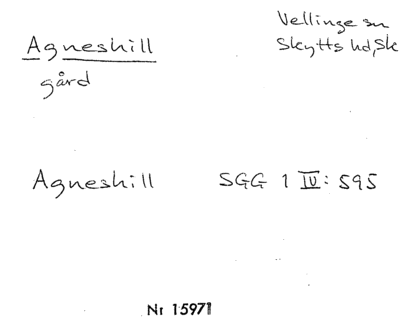 Agneshill
Vellinge sn
Skytts hd, Sk
gård
Agneshill SGG 1 IV: 595
Nr 15971